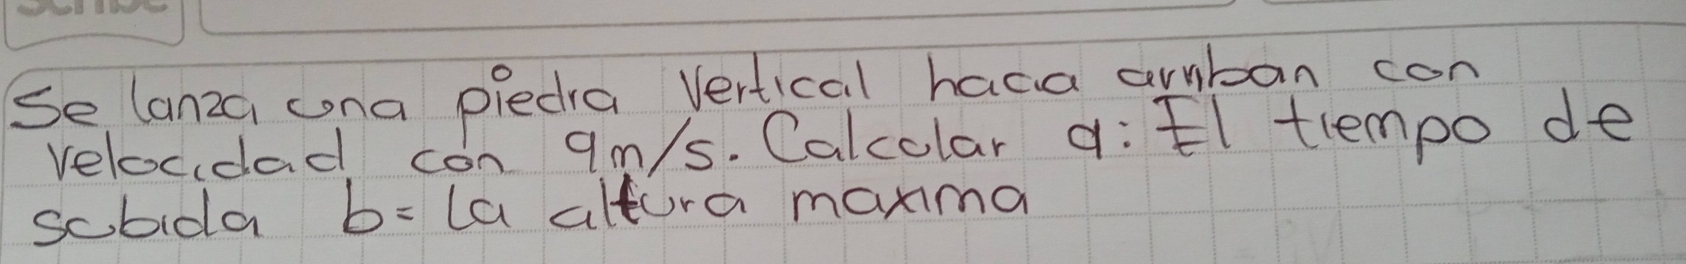 Scribe
Se lanza una piedra vertical hacia arriban con
velocidad con 9m/s. Calcular a: El tiempo de
subida b= la altura maxima